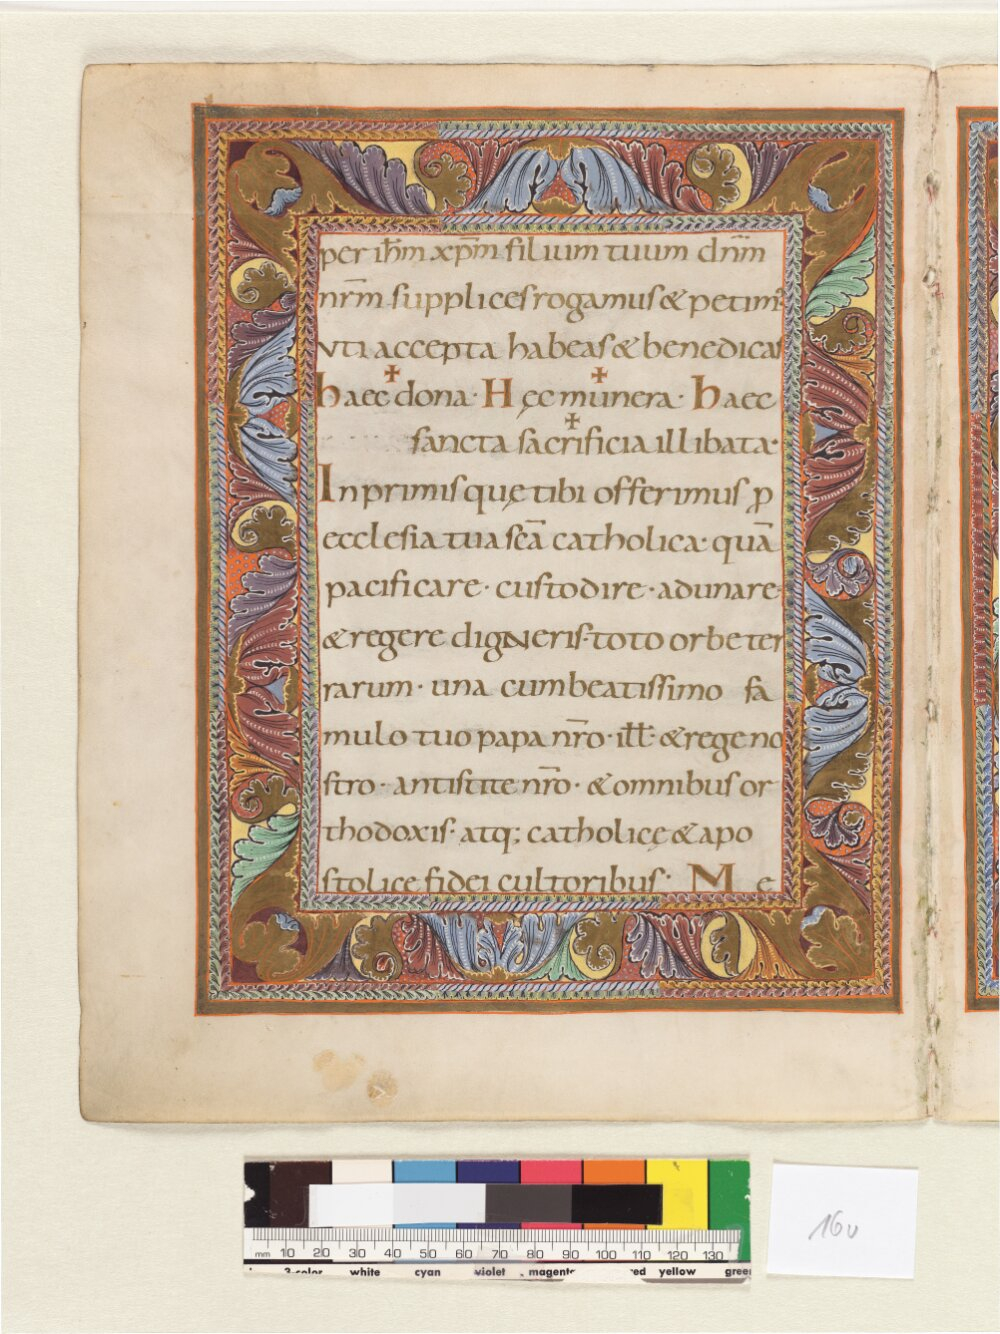 per ih̅m xp̅m filium tuum dn̅m
nr̅m supplices rogamus & petimꝰ
Vti accepta habeas & benedicas
haec dona · Hęc munera · haec
sancta sacrificia illibata ·
In primis quę tibi offerimus ꝓ
ecclesia tua sc̅a catholica · quā
pacificare · custodire · adunare
& regere digNeris · toto orbe ter
rarum · una cum beatissimo fa
mulo tuo papa nr̅o · ill̅ · & rege no
stro · antistite nr̅o · & omnibus or
thodoxis · atq; catholicę & apo
stolice fidei cultoribus · Me
16v
mm 10 20 30 40 50 60 70 80 90 100 110 120 130
3-color white cyan violet magenta red yellow green